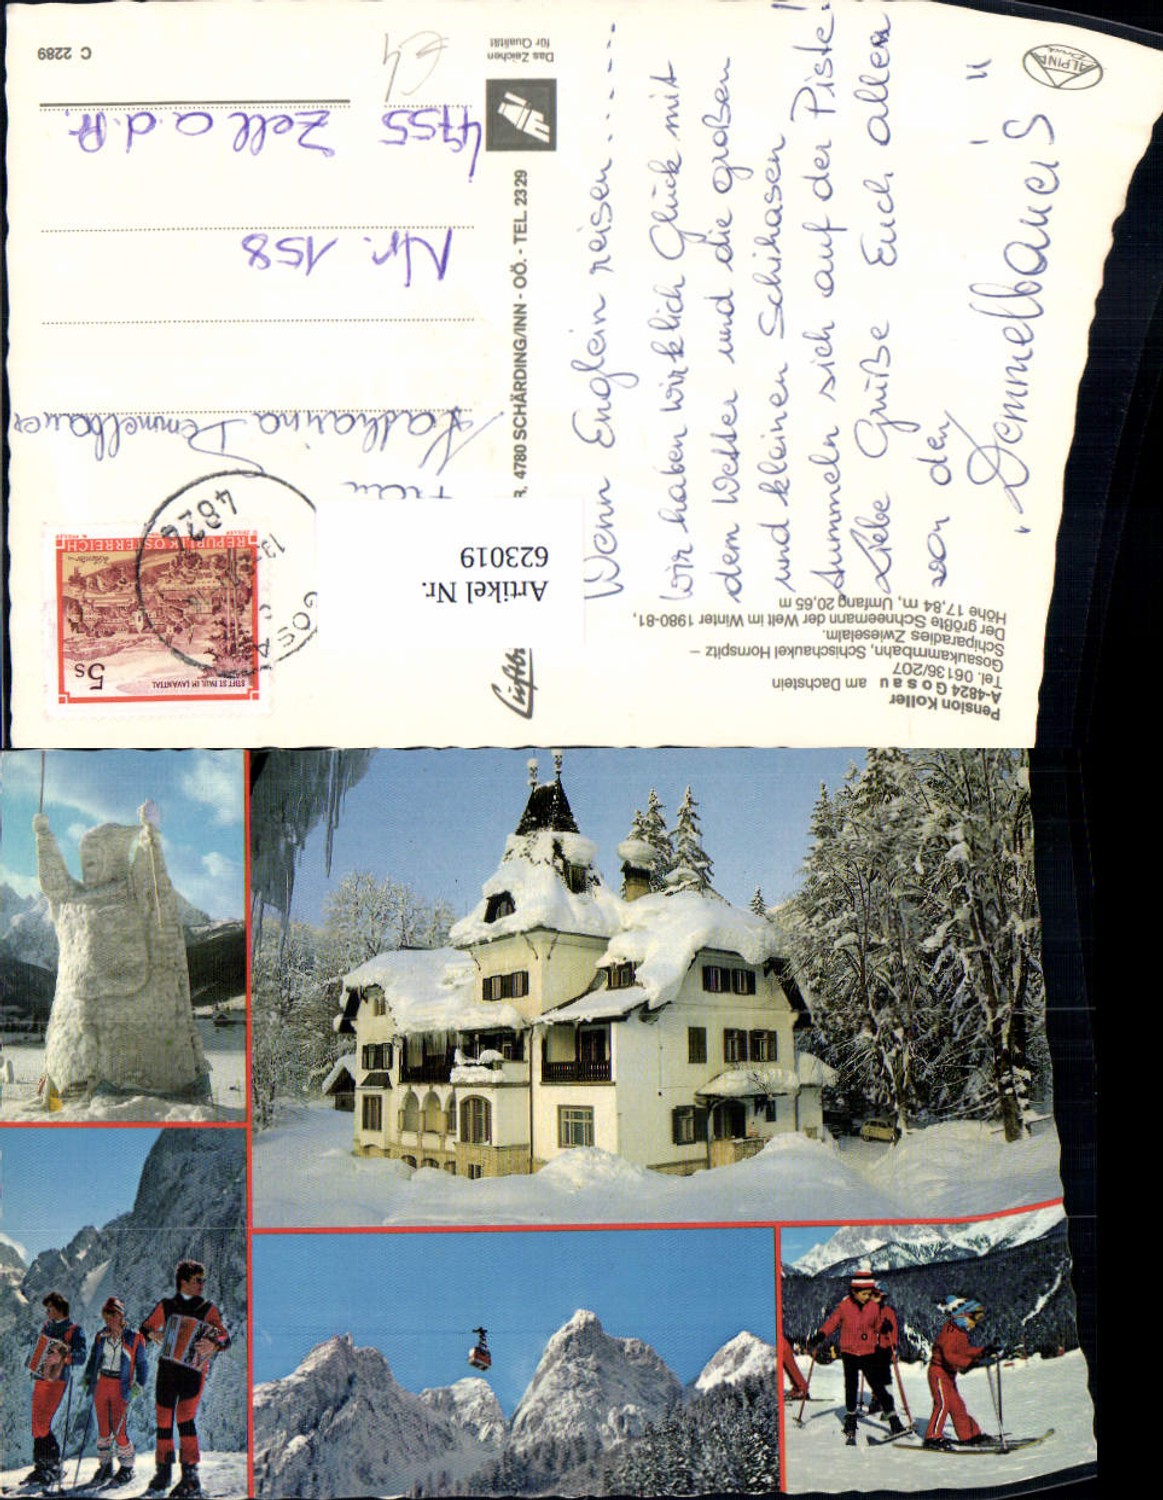 Pension Koller
A-4824 Gosau am Dachstein
Tel. 06136/207
Gosaukammbahn, Schischaukel Hornspitz –
Schiparadies Zwieselalm.
Der größte Schneemann der Welt im Winter 1980-81,
Höhe 17,84 m, Umfang 20,65 m
Wenn Englein reisen......
Wir haben wirklich Glück mit
dem Wetter und die großen
und kleinen Schihasen
tummeln sich auf der Piste!
Liebe Grüße Euch allen
von den
"Demmelbauer's"
ALPINA
Druck
4780 SCHÄRDING/INN - OÖ. - TEL. 2329
Das Zeichen
für Qualität
REPUBLIK ÖSTERREICH
STIFT ST. PAUL IM LAVANTTAL
5s
4824
GOSAU
Artikel Nr.
623019
Frau
Katharina Demmelbauer
Nr. 158
4755 Zell a. d. Pr.
C 2289